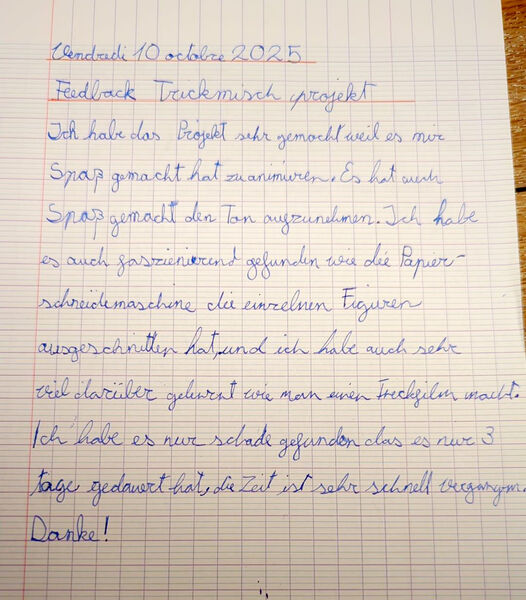 Vendredi 10 octobre 2025
Feedback Trickmisch projekt
Ich habe das Projekt sehr gemocht weil es mir
Spaß gemacht hat zu animiren. Es hat auch
Spaß gemacht den Ton aufzunehmen. Ich habe
es auch faszienierend gefunden wie die Papier-
schneidemaschine die einzelnen Figuren
ausgeschnitten hat, und ich habe auch sehr
viel darüber gelernt wie man einen Trickfilm macht.
Ich habe es nur schade gefunden das es nur 3
tage gedauert hat, die Zeit ist sehr schnell vergangen.
Danke!